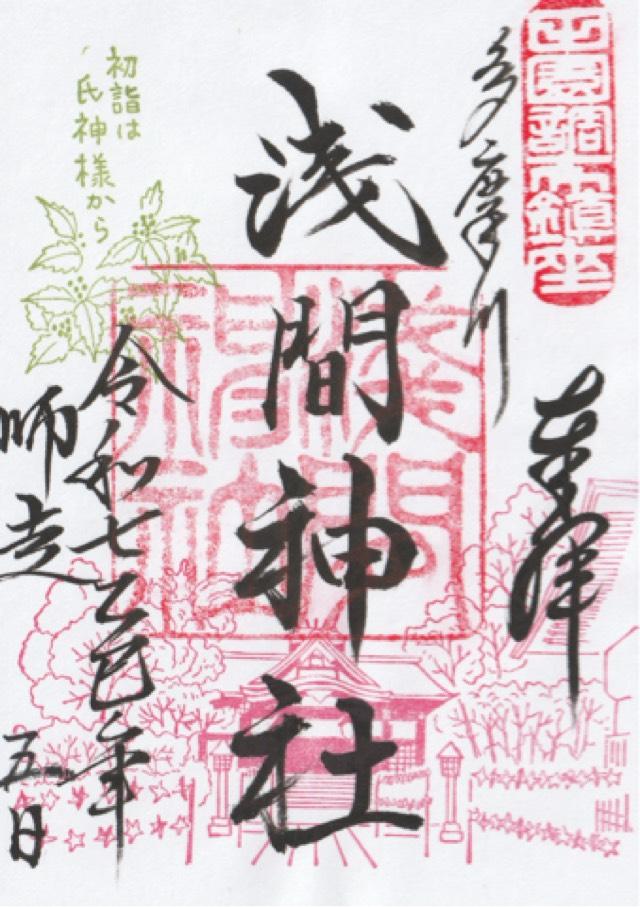 田園調布鎮座
多摩川
奉拝
浅間神社
浅間神社
初詣は
氏神様から
令和七乙巳年
師走
五日